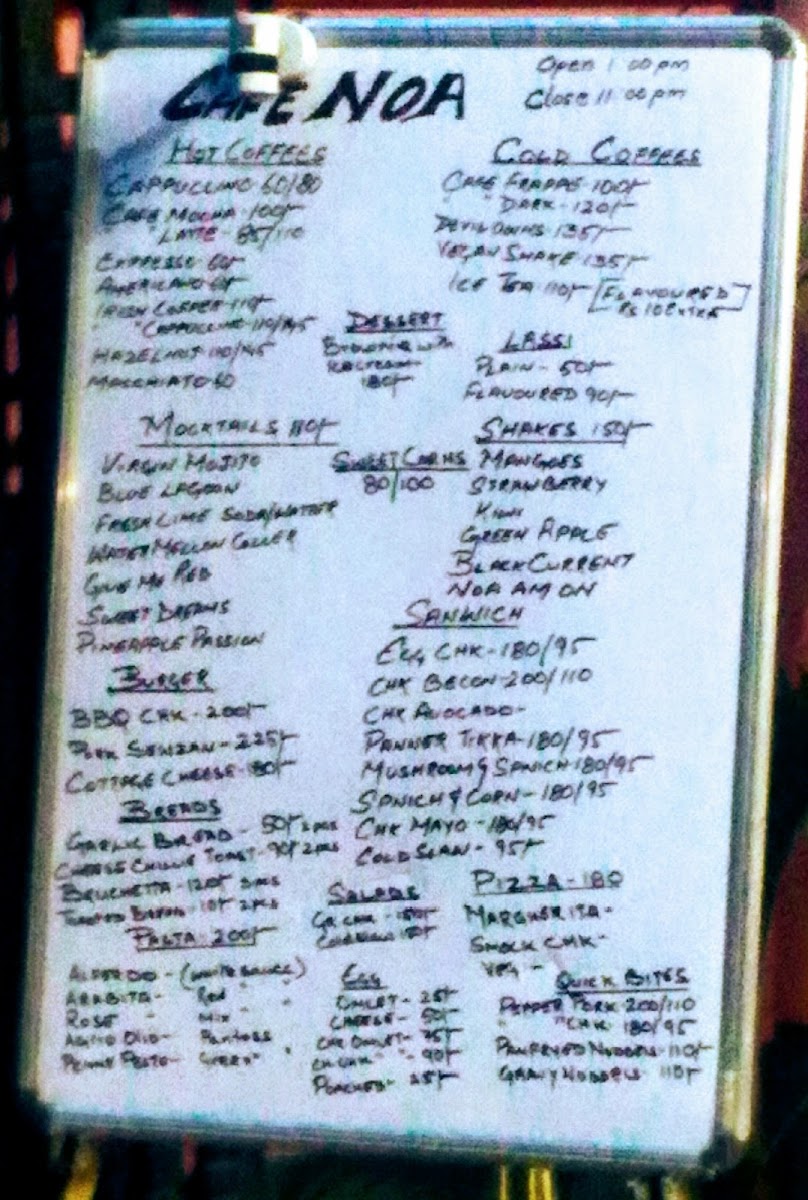 CAFE NOA
Open 1:00pm
Close 11:00pm
HOT COFFEES
CAPPUCCINO 60/80
CAFE MOCHA - 100/-
" LATTE - 85/110
EXPRESSO - 60/-
AMERICANO 60/-
IRISH COFFEE - 110/-
" CAPPUCCINO 110/145
HAZELNUT 110/145
MACCHIATO 60
COLD COFFEES
CAFE FRAPPE 100/-
" DARK - 120/-
135/-
VEGAN SHAKE 135/-
ICE TEA 110/- [FLAVOURED
RS 10 EXTRA]
DESSERT
BROWNIE WITH
ICECREAM
180/-
LASSI
PLAIN - 50/-
FLAVOURED 90/-
MOCKTAILS 110/-
VIRGIN MOJITO
BLUE LAGOON
FRESH LIME SODA/WATER
WATER MELLON COLLER
GIVE ME RED
SWEET DREAMS
PINEAPPLE PASSION
SWEET CORNS
80/100
SHAKES 150/-
MANGOES
STRAWBERRY
KIWI
GREEN APPLE
BLACK CURRENT
NOA AM ON
SANWICH
EGG CHK - 180/95
CHK BECON - 200/110
CHK AVOCADO -
PANNER TIKKA - 180/95
MUSHROOM & SPNICH 180/95
SPNICH & CORN - 180/95
CHK MAYO - 180/95
COLD SLAN - 95/-
BURGER
BBQ CHK - 200/-
PORK - 225/-
COTTAGE CHEESE - 180/-
BREADS
GARLIC BREAD - 50/- 2 pcs
CHEESE CHILLIE TOAST - 90/- 2 pcs
BRUCHETTA - 120/- 3 pcs
TOASTED BREAD - 10/- 2 pcs
PASTA 200/-
ALFERDO - (WHITE SAUCE)
ARABITA - Red " "
ROSE " Mix " "
AGLIO OLIO -
PENNE PESTO - GREEN " "
SALADS
GR. CHK - 150/-
EGG
OMLET - 25/-
CHEESE - 50/-
CHK OMLET - 75/-
" - 90/-
POACHED - 25/-
PIZZA - 180
MARGHERITA -
SMOCK CHK -
VEG -
QUICK BITES
PEPPER PORK 200/110
" " CHK 180/95
PANFRYED NUDDELS - 110/-
GRAVY NUDDELS 110/-